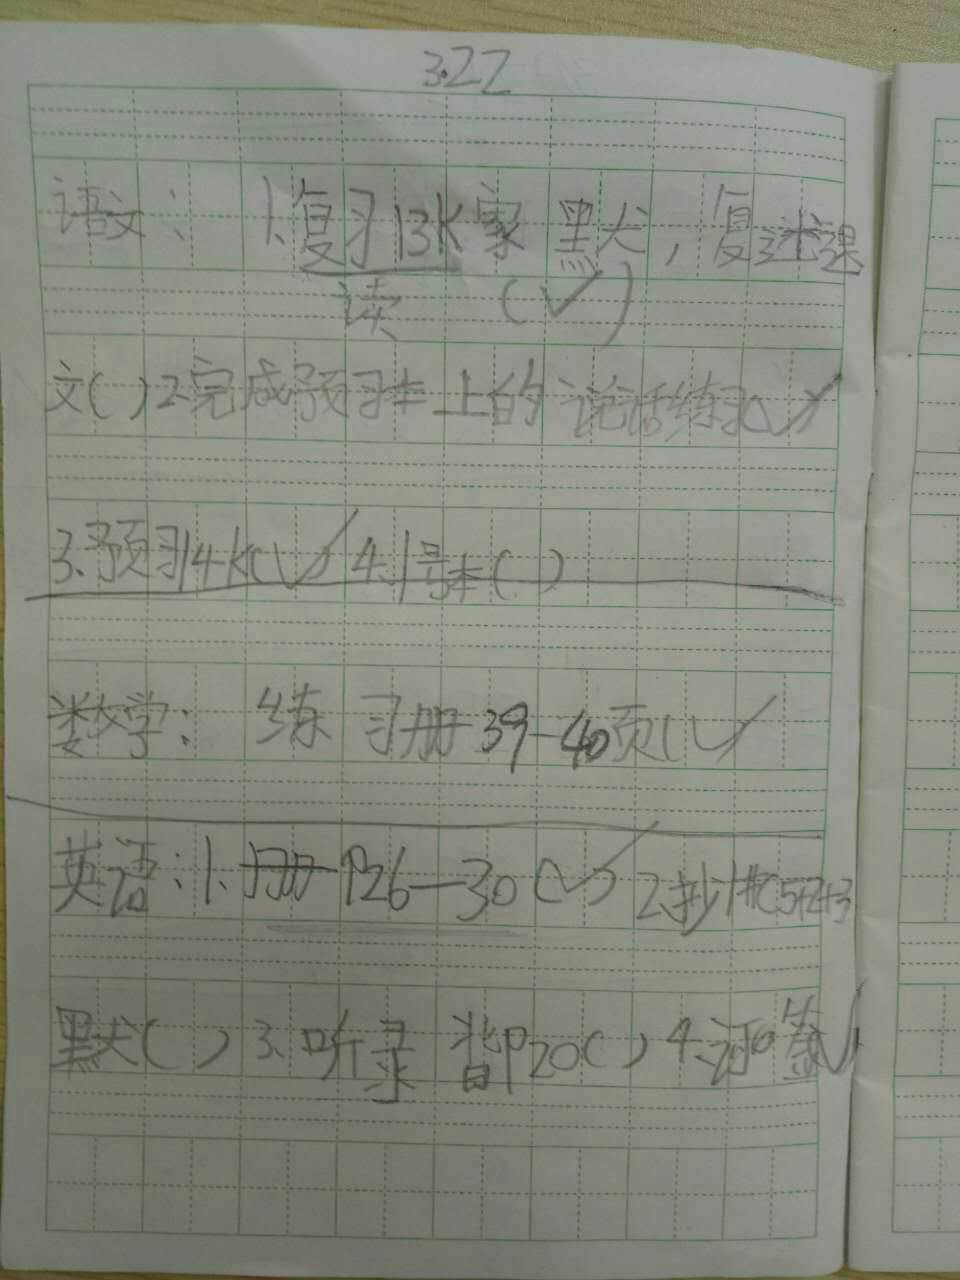 3.22
语文: 1.复习13K家默, 复述课
读 (✓)
文( )2.完成预习本上的说话练习(✓)
3.预习14K(✓) 4.1号本( )
数学: 练习册39-40页(✓)
英语:1.册P26—30(✓) 2.抄1#(5+2+3
默( )3.听录 背P20( )4.订 签(✓)